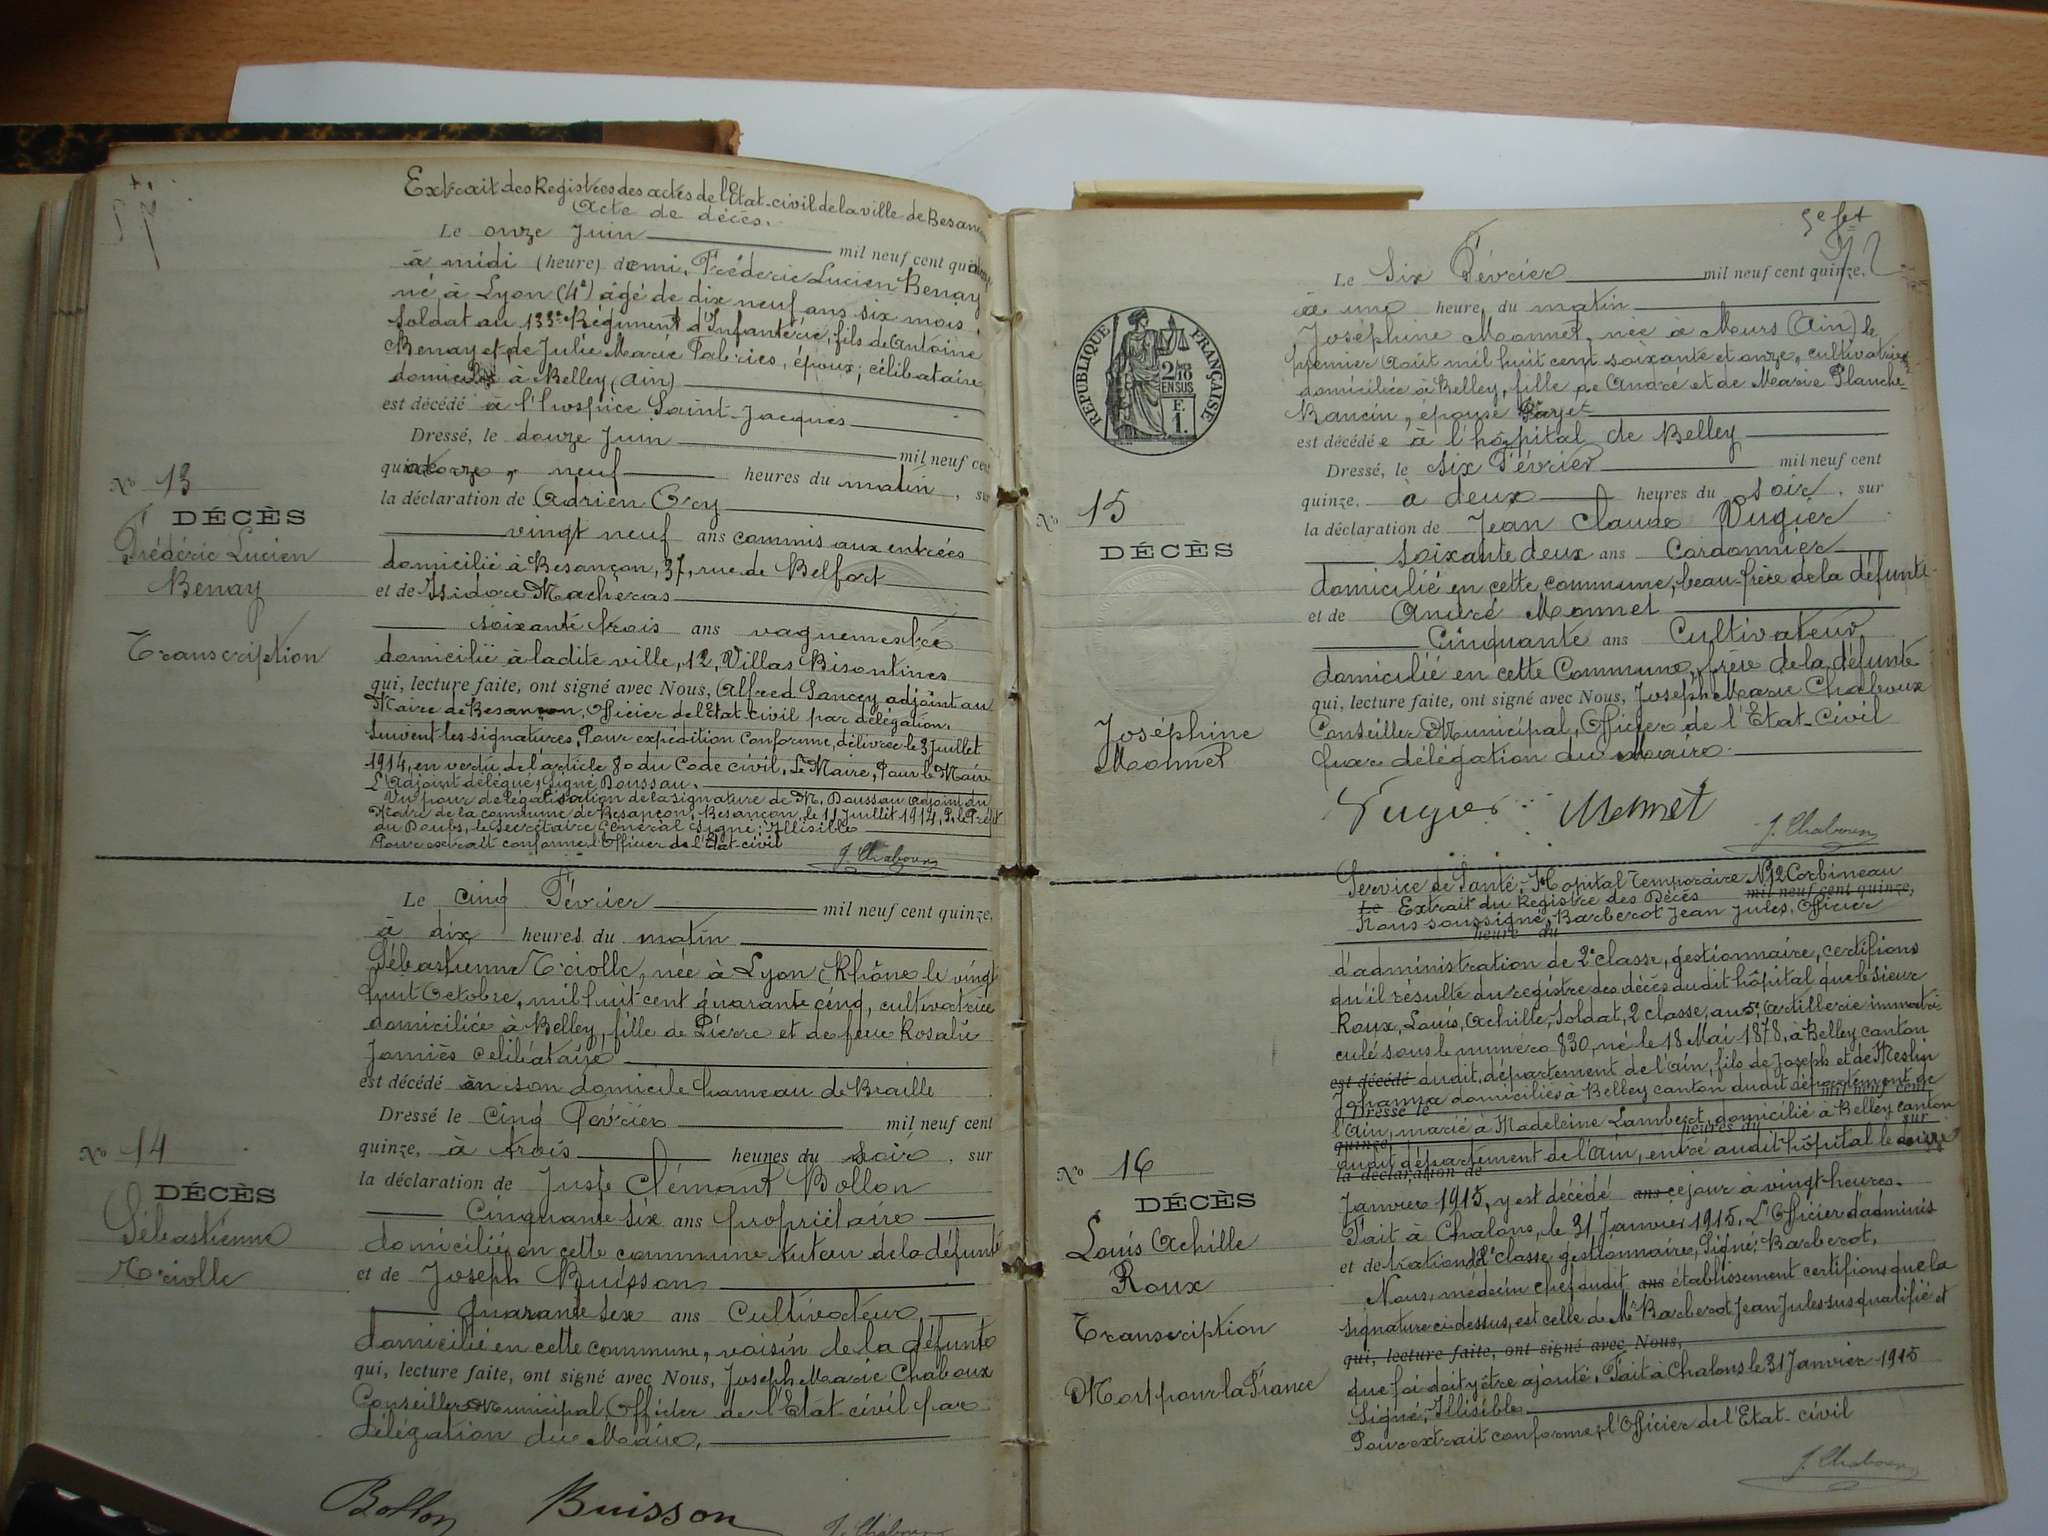 Extrait des Registres des actes de l'Etat-civil de la ville de Besan
Acte de décès.
Le onze Juin mil neuf cent
à midi (heure) demi, Fréderic Lucien Benay
né à Lyon (4e) âgé de dix neuf ans six mois,
Soldat au 133e Régiment d'Infanterie, fils de Antoine
Benay et de Julie Marie Fabries, époux; célibataire
domicilié à Belley (Ain)
est décédé à l'hospice Saint-Jacques
Dressé, le douze Juin mil neuf cent
neuf heures du matin, sur
No 13
la déclaration de Adrien
DÉCÈS
vingt neuf ans commis aux entrées
Frédéric Lucien
domicilié à Besançon, 37, rue de Belfort
Benay
et de Isidore Macheras
soixante trois ans vaguemestre
Transcription
domicilié à ladite ville, 12, Villas Bisontines
qui, lecture faite, ont signé avec Nous, Alfred Sancey adjoint au
Maire de Besançon, Officier de l'Etat-civil par délégation.
Suivent les signatures. Pour expédition conforme, délivrée le 3 Juillet
1914, en vertu de l'article 80 du Code civil. Le Maire, Pour le Maire
L'Adjoint délégué, Signé Doussau.
Vu pour de légalisation de la signature de M. Doussau adjoint du
Maire de la commune de Besançon, Besançon, le 11 Juillet 1914, P. le Préfet
du Doubs, le Secrétaire Général Signé: Illisible
Pour extrait conforme, l'Officier de l'Etat-civil
J. Chaboux
Le cinq Février mil neuf cent quinze,
à dix heures du matin
Sébastienne Triolle, née à Lyon Rhône le vingt
huit Octobre, mil huit cent quarante cinq, cultivatrice
domiciliée à Belley, fille de Pierre et de feue Rosalie
Jamiès celibataire
est décédé en son domicile hameau de Braille
Dressé le Cinq Février mil neuf cent
No 14
quinze, à trois heures du soir, sur
DÉCÈS
la déclaration de Juste Clémant Bollon
Sébastienne
Cinquante six ans propriétaire
Triolle
domicilié en cette commune tuteur de la défunte
et de Joseph Buisson
quarante six ans Cultivateur
domicilié en cette commune, voisin de la défunte
qui, lecture faite, ont signé avec Nous, Joseph Marie Chaboux
Conseiller Municipal, Officier de l'Etat civil par
délégation du Maire.
Bollon Buisson J. Chaboux
5e fet
72
RÉPUBLIQUE FRANÇAISE
2/10
EN SUS
F.
1.
Le Six Février mil neuf cent quinze,
à une heure du matin
Joséphine Monnet, née à Murs (Ain) le
premier Août mil huit cent soixante et onze, cultivatrice
domiciliée à Belley, fille de André et de Marie Planche-
Bancin, épouse Payet
est décédée à l'hôpital de Belley
Dressé, le six Février mil neuf cent
No 15
quinze, à deux heures du soir, sur
DÉCÈS
la déclaration de Jean Claude Vugier
soixante deux ans Cordonnier
domicilié en cette commune, beau-frère de la défunte
et de André Monnet
Cinquante ans Cultivateur
domicilié en cette Commune, frère de la défunte
qui, lecture faite, ont signé avec Nous, Joseph Marie Chaboux
Joséphine
Conseiller Municipal, Officier de l'Etat-Civil
Monnet
par délégation du Maire.
Vugier Monnet
J. Chaboux
Service de Santé. Hopital Temporaire No 2 Corbineau
Le Extrait du Registre des Décès mil neuf cent quinze,
Nous soussigné, Barberot Jean Jules, Officier
heure du
d'administration de 2e classe, gestionnaire, certifions
qu'il résulte du registre des décès dudit hôpital que le sieur
Roux, Louis, Achille, Soldat, 2 classe, au 5e Artillerie immatri-
culé sous le numéro 830, né le 18 Mai 1878, à Belley canton
est décédé dudit, département de l'Ain, fils de Joseph et de Meslin
Johanna domiciliés à Belley canton dudit département de
Dressé le mil neuf cent
l'Ain, marié à Madeleine Lambert, domicilié à Belley canton
quinze, heures du sur
dudit département de l'Ain, entré audit hôpital le douze
la déclaration de
No 16
Janvier 1915, y est décédé ans ce jour à vingt heures.
DÉCÈS
Fait à Chalons, le 31 Janvier 1915. L'Officier d'adminis
Louis Achille
et de tration de 2e classe gestionnaire, Signé: Barberot,
Roux
Nous, médecin chef dudit ans établissement certifions que la
signature ci-dessus, est celle de Mr Barberot Jean Jules susqualifié et
Transcription
qui, lecture faite, ont signé avec Nous,
Mort pour la France
que foi doit y être ajouté. Fait à Chalons le 31 Janvier 1915
Signé: Illisible
Pour extrait conforme, l'Officier de l'Etat-civil
J. Chaboux